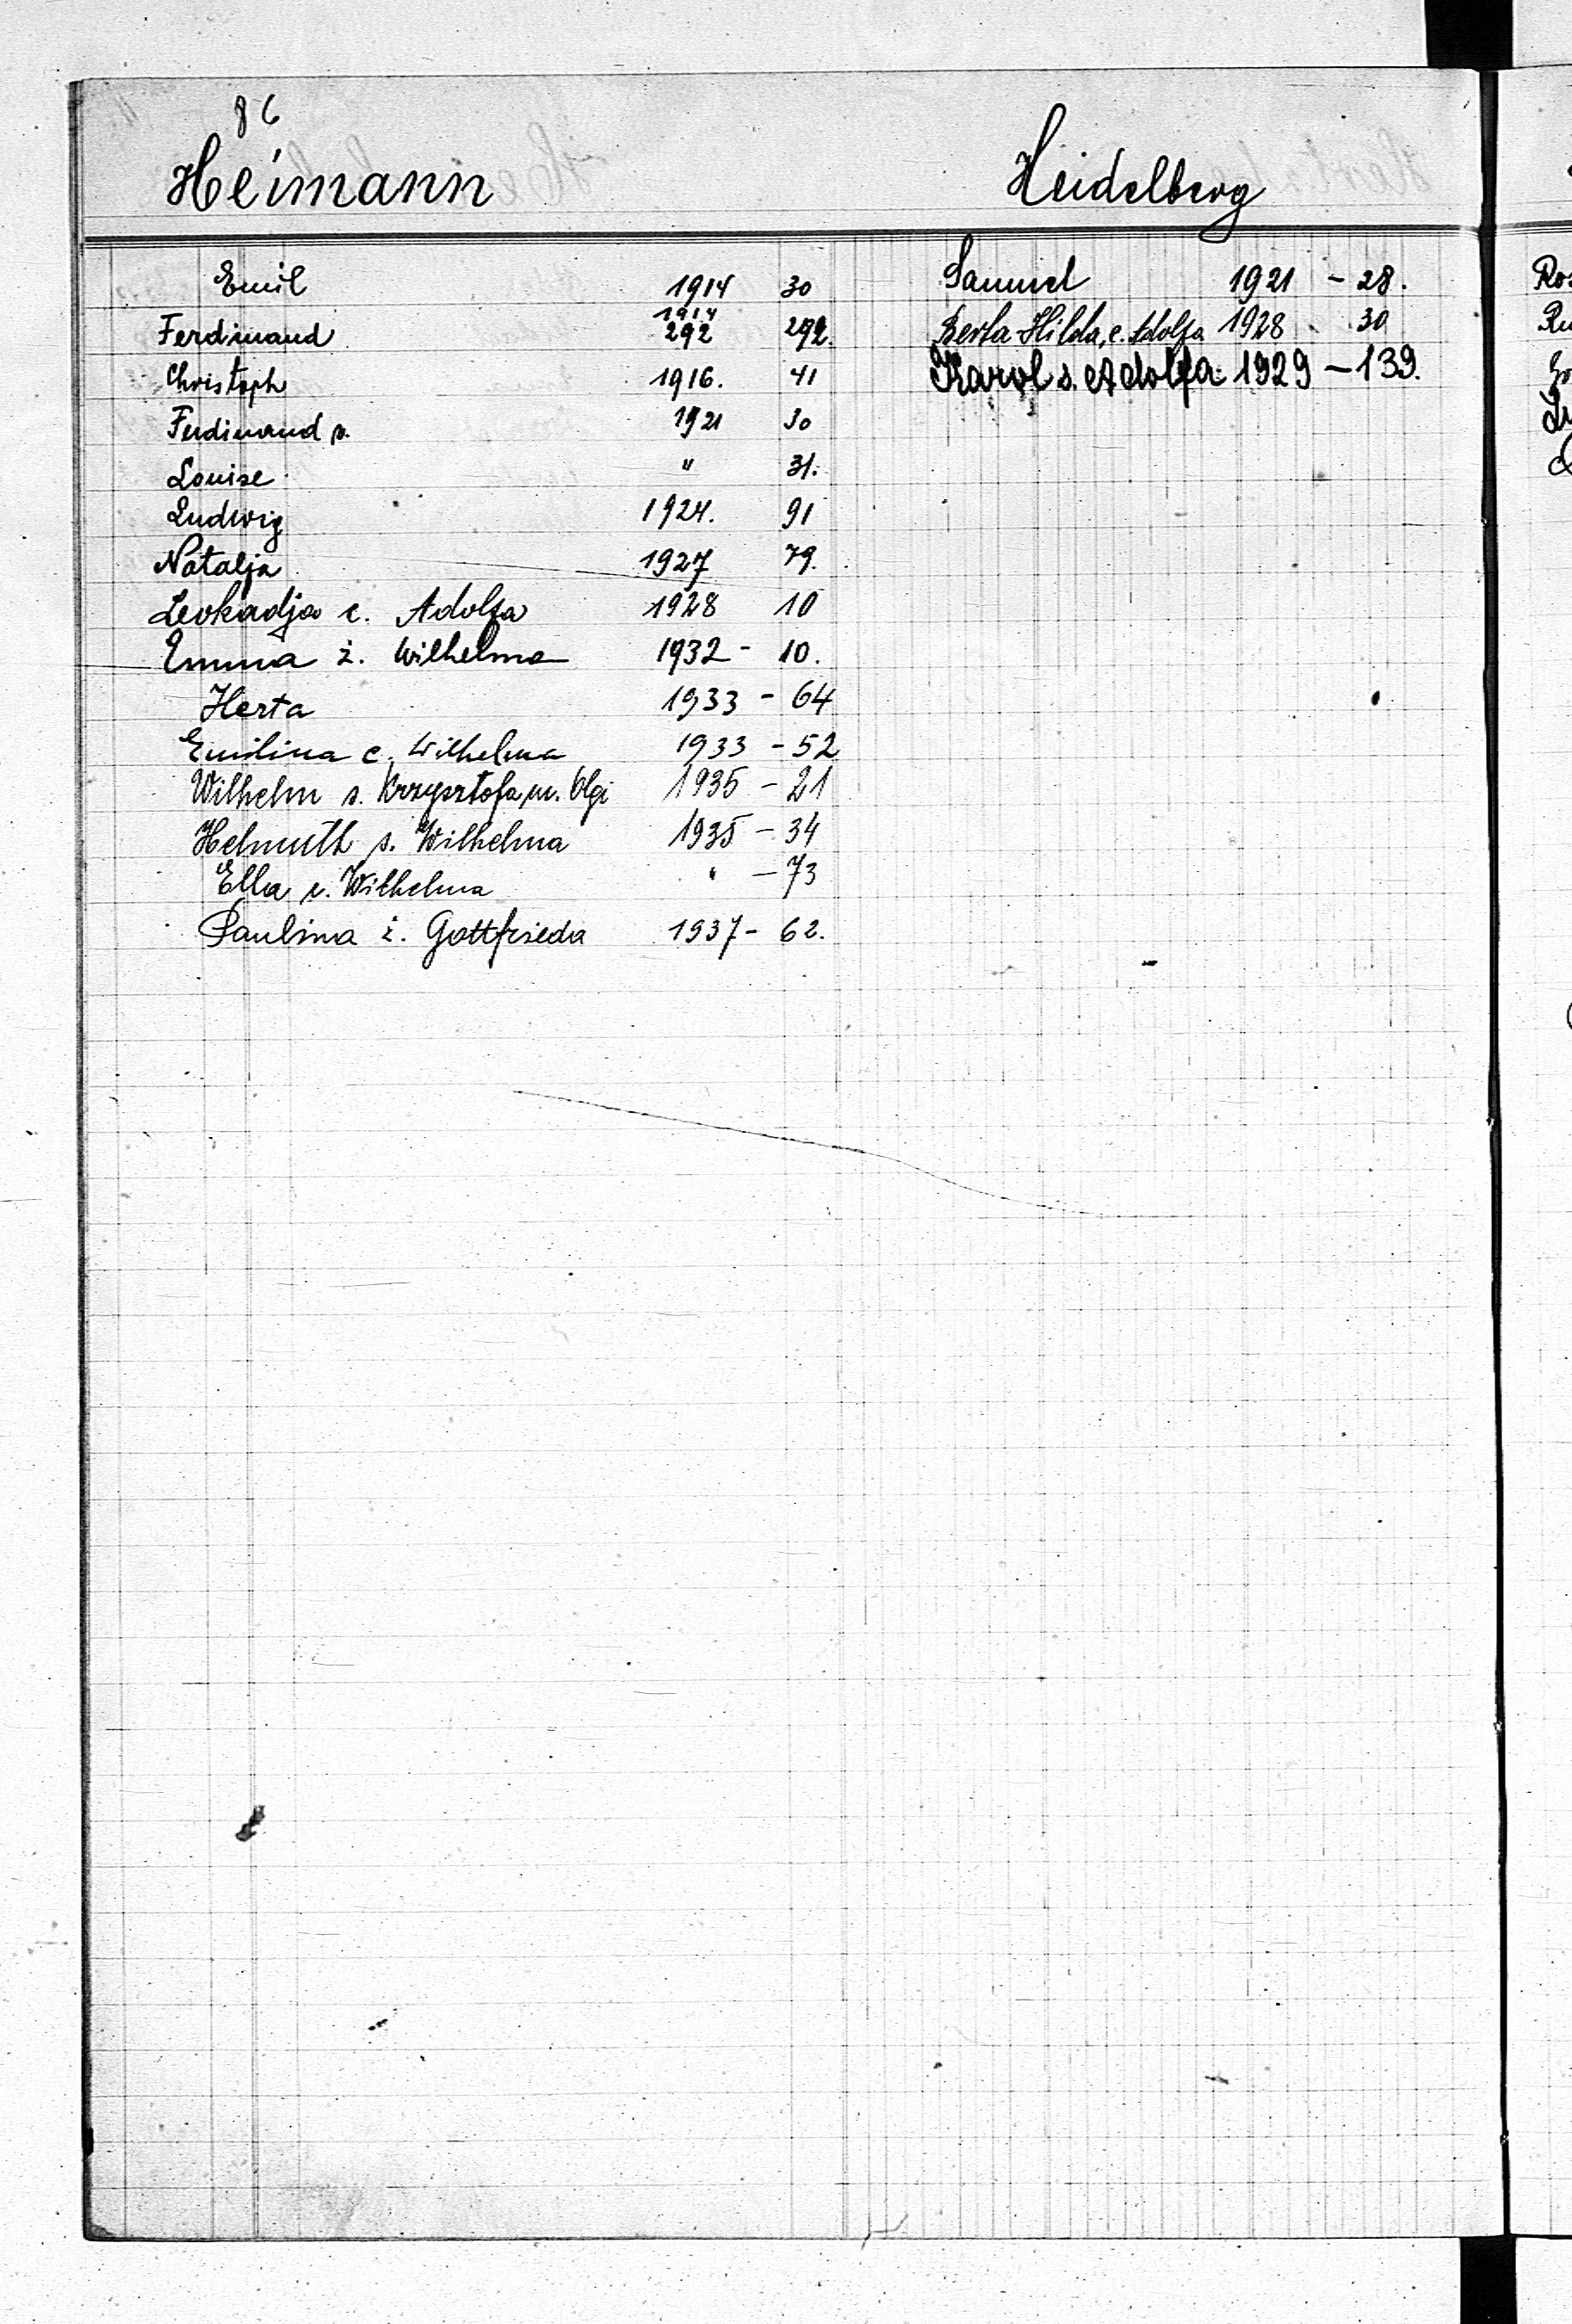 86
Heimann
Emil 1914 30
1914
Ferdinand 292 292.
Christoph 1916. 41
Ferdinand s. 1921 30
Louise " 31.
Ludwig 1924. 91
Natalja 1927 79.
Leokadja c. Adolfa 1928 10
Emma ż. Wilhelma 1932 - 10.
Herta 1933 - 64
Emilina c. Wilhelma 1933 - 52
Wilhelm s. Krzysztofa, m. Olgi 1935 - 21
Helmuth s. Wilhelma 1935 - 34
Ella c. Wilhelma " - 73
Paulina ż. Gottfrieda 1937 - 62.
Heidelberg
Samuel 1921 - 28.
Berta-Hilda, c. Adolfa 1928 30
Karol s. Adolfa 1929 - 139.